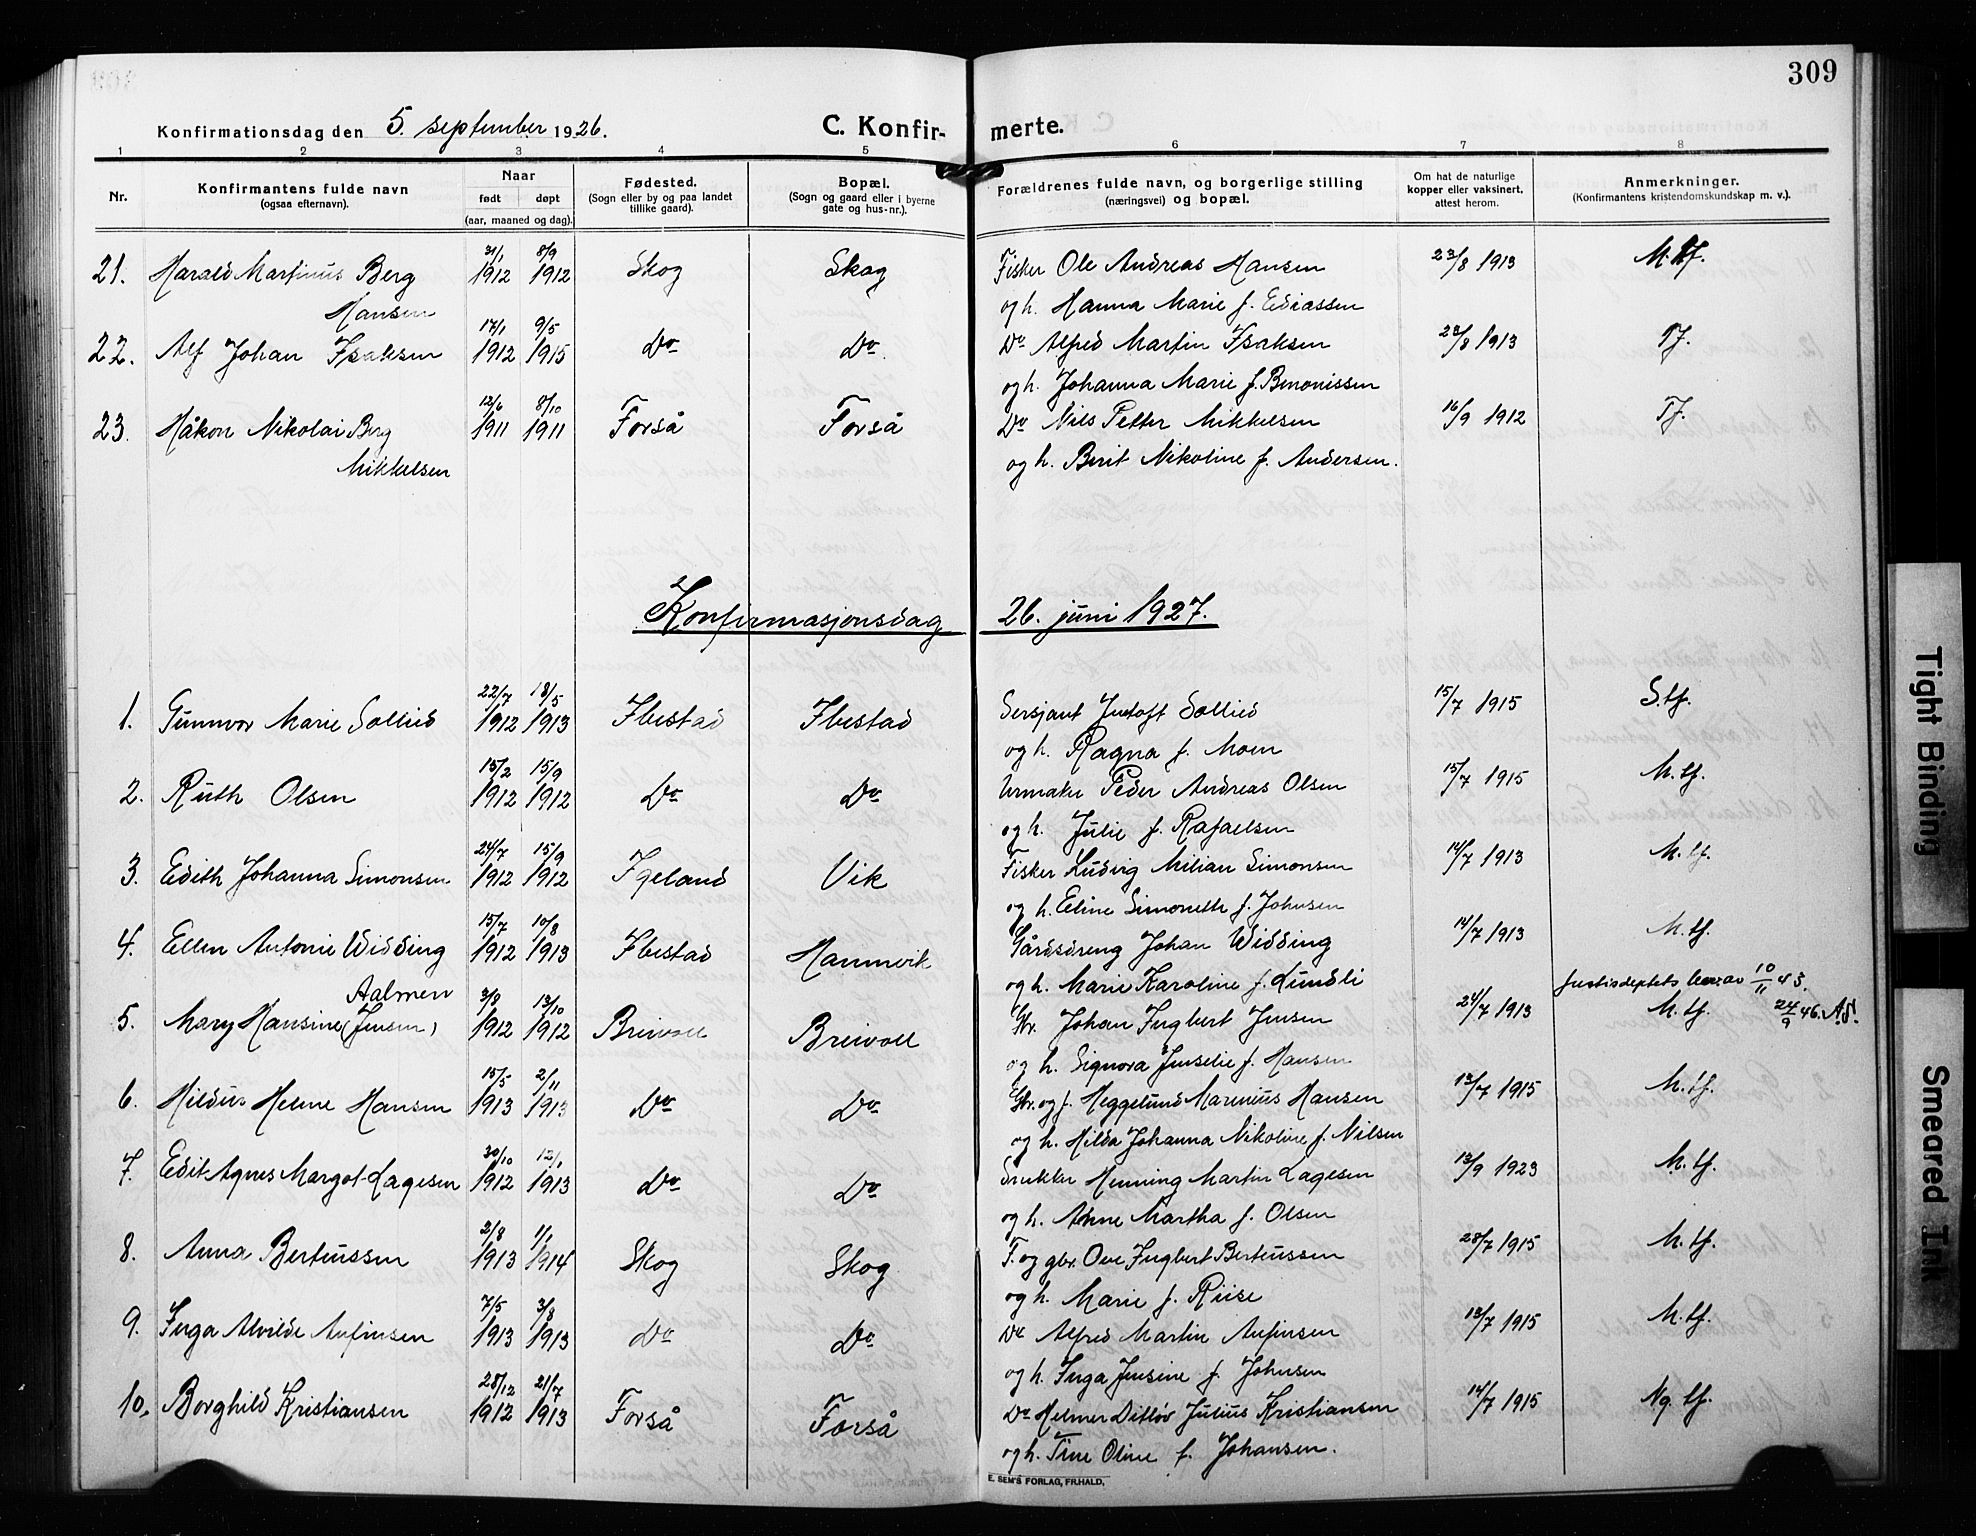 309
Konfirmationsdag den 5. september 1926.
C. Konfir- merte.
1 2 3 4 5 6 7 8
Nr.
Konfirmantens fulde navn
(ogsaa efternavn).
Naar
født døpt
(aar, maaned og dag).
Fødested.
(Sogn eller by og paa landet
tillike gaard).
Bopæl.
(Sogn og gaard eller i byerne
gate og hus-nr.).
Forældrenes fulde navn, og borgerlige stilling
(næringsvei) og bopæl.
Om hat de naturlige
kopper eller vaksinert,
attest herom.
Anmerkninger.
(Konfirmantens kristendomskundskap m. v.).
31/1 8/9
21. Harald Martinus Berg 1912 1912 Skog Skog Fisker Ole Andreas Hansen 23/8 1913 M.tf.
Hansen og h. Hanna Marie f. Ediassen
17/1 9/5
22. Alf Johan Isaksen 1912 1915 Do Do Do Alfred Martin Isaksen 23/8 1913 Tf.
og h. Johanna Marie f. Benonissen
12/6 8/10
23. Håkon Nikolai Berg 1911 1911 Forså Forså Do Nils Petter Mikkelsen 16/9 1912 Tf.
Mikkelsen og h. Berit Nikoline f. Andersen.
Konfirmasjonsdag 26. juni 1927.
22/7 18/5
1. Gunnvor Marie Sollied 1912 1913 Ibestad Ibestad Sersjant Justoft Sollied 15/7 1915 S.tf.
og h. Ragna f. Moen
15/2 15/9
2. Ruth Olsen 1912 1912 Do Do Urmaker Peder Andreas Olsen 15/7 1915 M.tf.
og h. Julie f. Rafaelsen
24/7 15/9
3. Edith Johanna Simonsen 1912 1912 Igeland Vik Fisker Ludvig Milian Simonsen 14/7 1913 M.tf.
og h. Eline Simoneth f. Johnsen
15/7 10/8
4. Ellen Antonie Widding 1912 1913 Ibestad Hamnvik Gårdsdreng Johan Widding 14/7 1913 M.tf.
og h. Marie Karoline f. Lundli
Aalmen 3/8 13/10 Justisdeptets bev. av 10/11 45.
5. Mary Hansine (Jensen) 1912 1912 Breivoll Breivoll Gbr. Johan Ingbert Jensen 24/7 1913 M.tf. 24/9 46. A.S.
og h. Signora Jenselie f. Hansen
15/5 2/11
6. Hildus Helene Hansen 1913 1913 Do Do Gbr. og f. Heggelund Marenius Hansen 13/7 1915 M.tf.
og h. Hilda Johanna Nikoline f. Nilsen
30/10 12/1
7. Edit Agnes Margot Lagesen 1912 1913 Do Do Snekker Henning Martin Lagesen 13/9 1923 M.tf.
og h. Anne Martha f. Olsen
2/8 1/1
8. Anna Berteussen 1913 1914 Skog Skog F. og gbr. Ove Ingbert Berteussen 28/7 1915 M.tf.
og h. Marie f. Riise
7/5 3/8
9. Inga Alvilde Anfinsen 1913 1913 Do Do Do Alfred Martin Anfinsen 13/7 1915 M.tf.
og h. Inga Jensine f. Johnsen
28/12 21/7
10. Borghild Kristiansen 1912 1913 Forså Forså Do Helmer Ditlov Julius Kristiansen 14/7 1915 Ng. tf.
og h. Tine Oline f. Johansen.
E. SEM'S FORLAG, FR.HALD.
Tight Binding
Smeared Ink